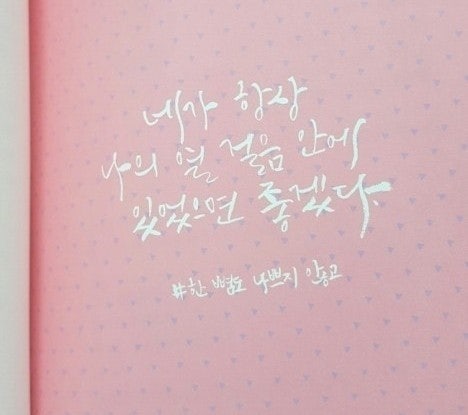 네가 항상
나의 열 걸음 안에
있었으면 좋겠다.
#한 뼘도 나쁘지 않고